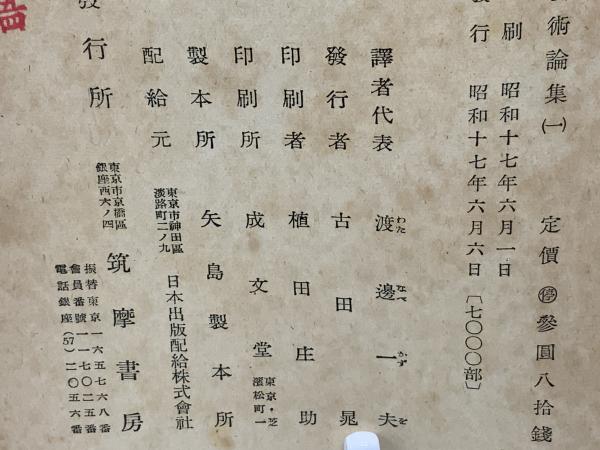 術論集(一)
定價 停 參圓八拾錢
刷 昭和十七年六月一日
發行 昭和十七年六月六日 〔七〇〇〇部〕
譯者代表 渡邊一夫
わたなべかずを
發行者 古田晁
印刷者 植田庄助
印刷所 成文堂
東京・芝
濱松町一
製本所 矢島製本所
配給元
東京市神田區
淡路町二ノ九
日本出版配給株式會社
發行所
東京市京橋區
銀座西六ノ四
筑摩書房
振替東京一六五七六八番
會員番號一一七〇二五番
電話銀座(57)二〇五六番